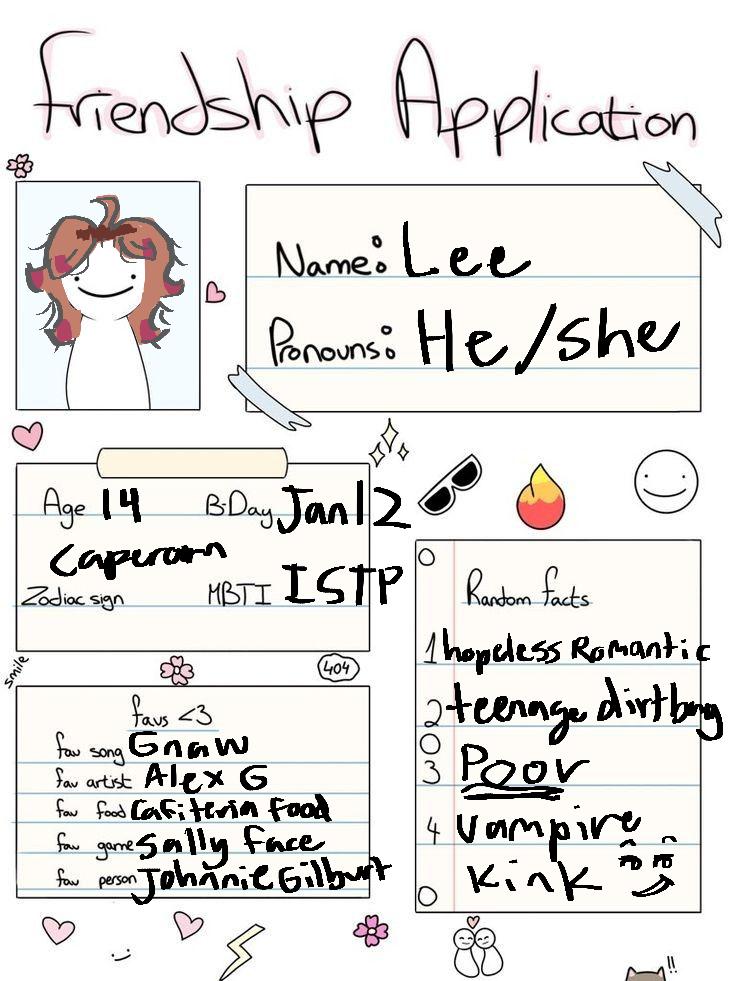 Friendship Application
Name: Lee
Pronouns: He/she
Age 14 B-Day Jan 12
Caperorn
Zodiac sign MBTI ISTP
smile
404
favs <3
fav song Gnaw
fav artist Alex G
fav food Cafiteria Food
fav game Sally Face
fav person Johnnie Gilburt
Random facts
1 hopeless Romantic
2 teenage dirtbag
3 Poor
4 vampire
kink
!!